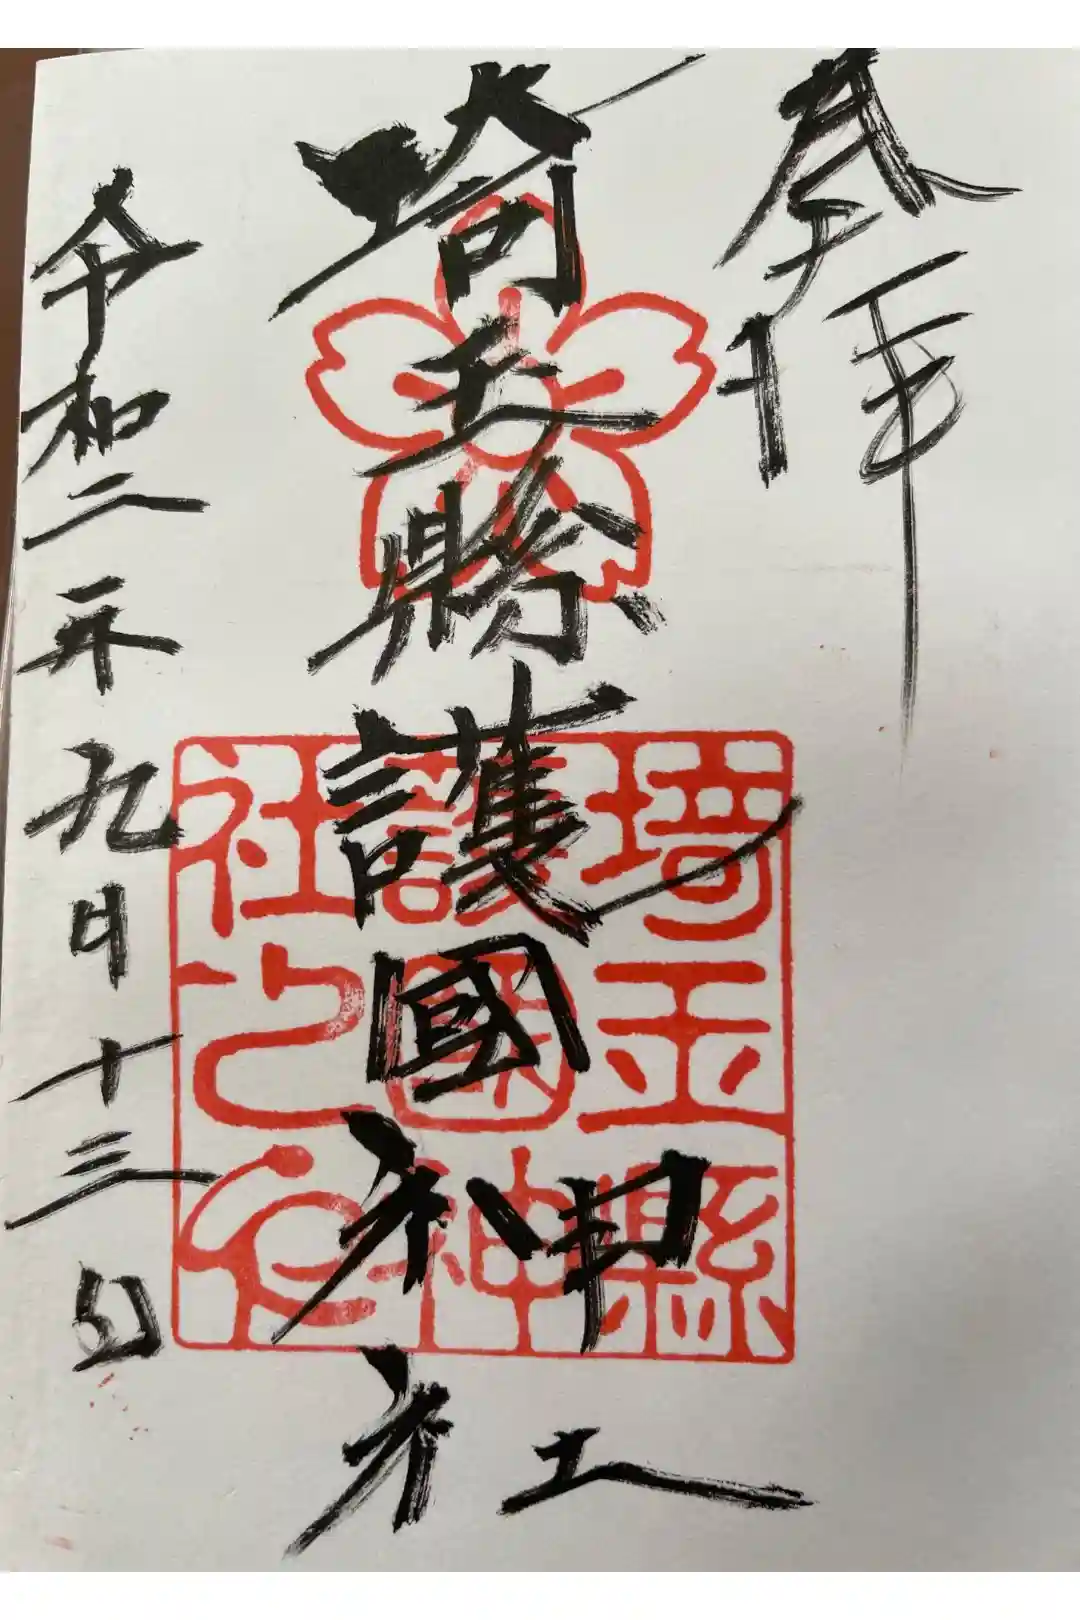 奉拝
埼玉縣護國神社
埼玉縣
護國神
社之印
令和二年九月十三日